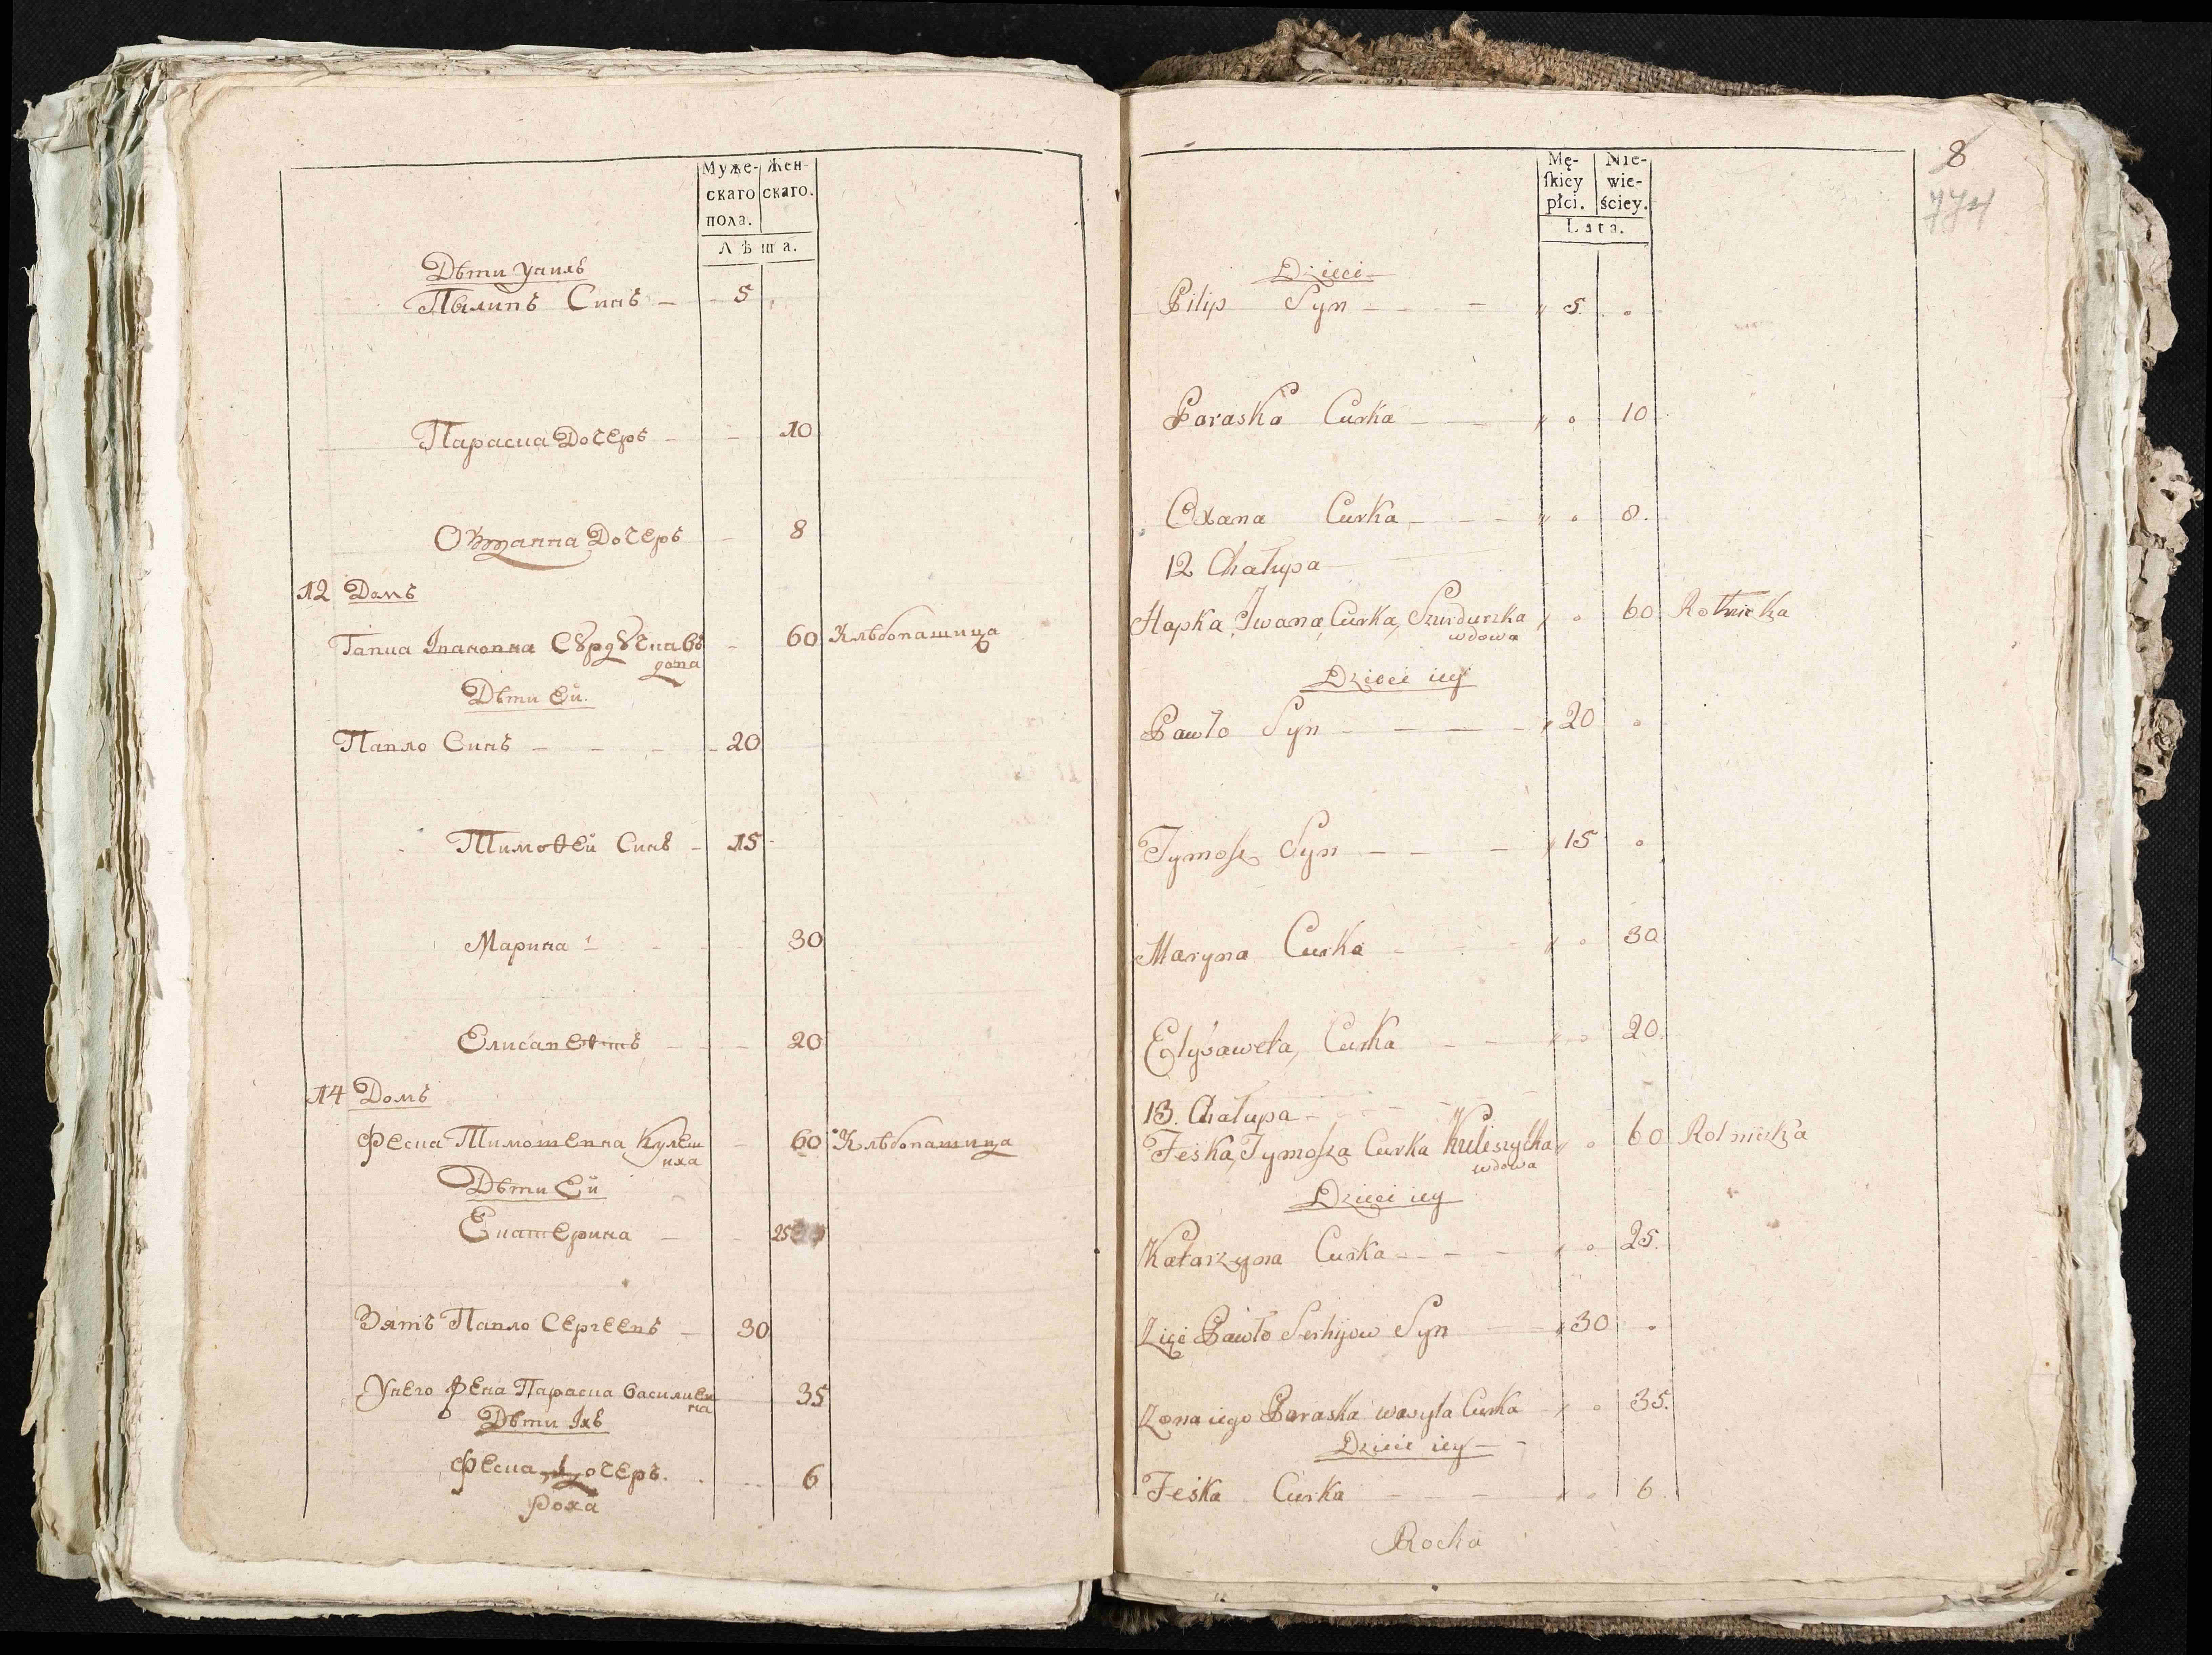 Муже- Жен-
скаго скаго.
пола.
Лѣта.
Дѣти Уаихъ
Пылипъ Синъ 5
Параска Дочеръ 10
Дочеръ 8
12 Домъ
Гапка Івановна Сꙋрдꙋчка въ 60 Хлѣбопашица
дова
Дѣти Ей.
Павло Синъ 20
Тимоѳей Синъ 15
Марина 30
Елисавеѳтъ 20
14 Домъ
Феска Тимошевна Кулеш 60 Хлѣбопашица
иха
Дѣти Ей
Екатерина 25
Зять Павло Сергеевъ 30
Унего жена Параска василиев 35
на
Дѣти Іхъ
Феска Дочеръ. 6
роха
8
774
Mę- Nie-
ſkiéy wie-
płci. ściey.
Lata.
Dzieci
Pilip Syn 5.
Paraska Curka 10
Oxana Curka 8.
12 Chałupa
Hapka, Iwana, Curka, Szurduczka 60 Rolniczka
wdowa
Dzieci iey
Pawło Syn 20
Tymosz Syn 15
Maryna Curka 30
Ełysaweta, Curka 20.
13. Chałupa
Feska, Tymosza Curka Kuliszycha 60 Rolniczka
wdowa
Dzieci iey
Katarzyna Curka 25.
Zięć Pawło Serhijow Syn 30
Zona iego Paraska wasyla Curka 35.
Dzieci iey
Feska Curka 6
Rocha